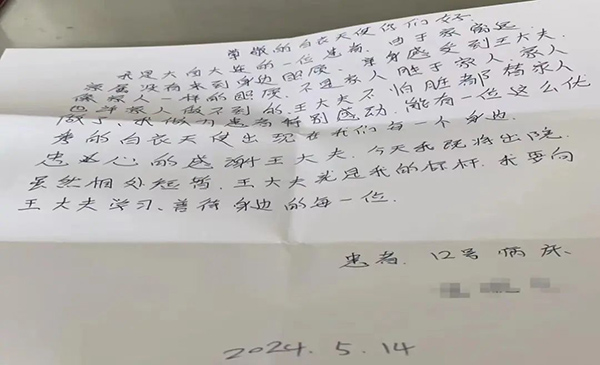 尊敬的白衣天使你们好.
我是大西大连的一位患者. 由于家离远
家属没有来到身边照顾. 亲身感受到王大夫.
像家人一样的照顾. 不是家人胜于家人 家人
做不到的. 王大夫不怕脏都替家人
做了. 我做为患者特别感动. 能有一位这么优
秀的白衣天使出现在我们每一个身边.
忠心的感谢王大夫. 今天我既将出院.
虽然相处短暂. 王大夫就是我的标杆. 我要向
王大夫学习、善待身边的每一位.
患者. 12号病床、
2024. 5. 14